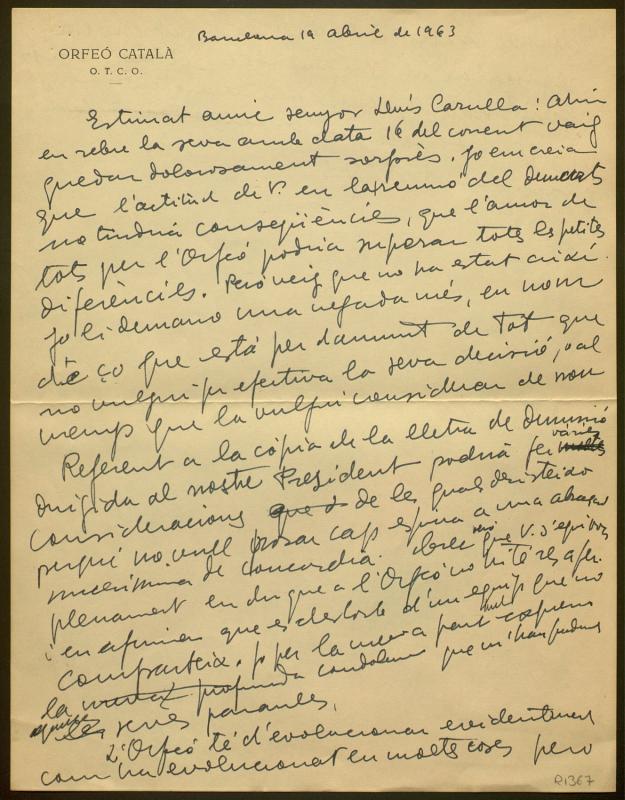 Barcelona 19 abril de 1963
ORFEÓ CATALÀ
O. T. C. O.
Estimat amic senyor Lluís Carulla: Ahir
en rebre la seva amb data 16 del corrent vaig
quedar dolorosament sorprès. Jo em creia
que l'actitud de V. en la reunió del dimecres
no tindria conseqüències, que l'amor de
tots per l'Orfeó podria superar tots les petites
diferències. Però veig que no ha estat així.
Jo li demano una vegada més, en nom
d'ço que está per damunt de tot que
no vulgui fer efectiva la seva decisió, o al
menys que la vulgui considerar de nou
Referent a la còpia de la lletra de dimissió
dirigida al nostre President podria fer vàries
consideracions de les quals desisteixo
perquè no vull posar cap espina a una
de concordia. que V. s'equivoca
plenament en dir que a l'Orfeó no hi té res a fer
i en afirmar que es desborda d'un equip que no
comparteix. Jo per la meva part
la profunda que m'han produit
aquestes les seves paraules.
L'Orfeó té d'evolucionar evidentment
com ha evolucionat en moltes coses però
R1367